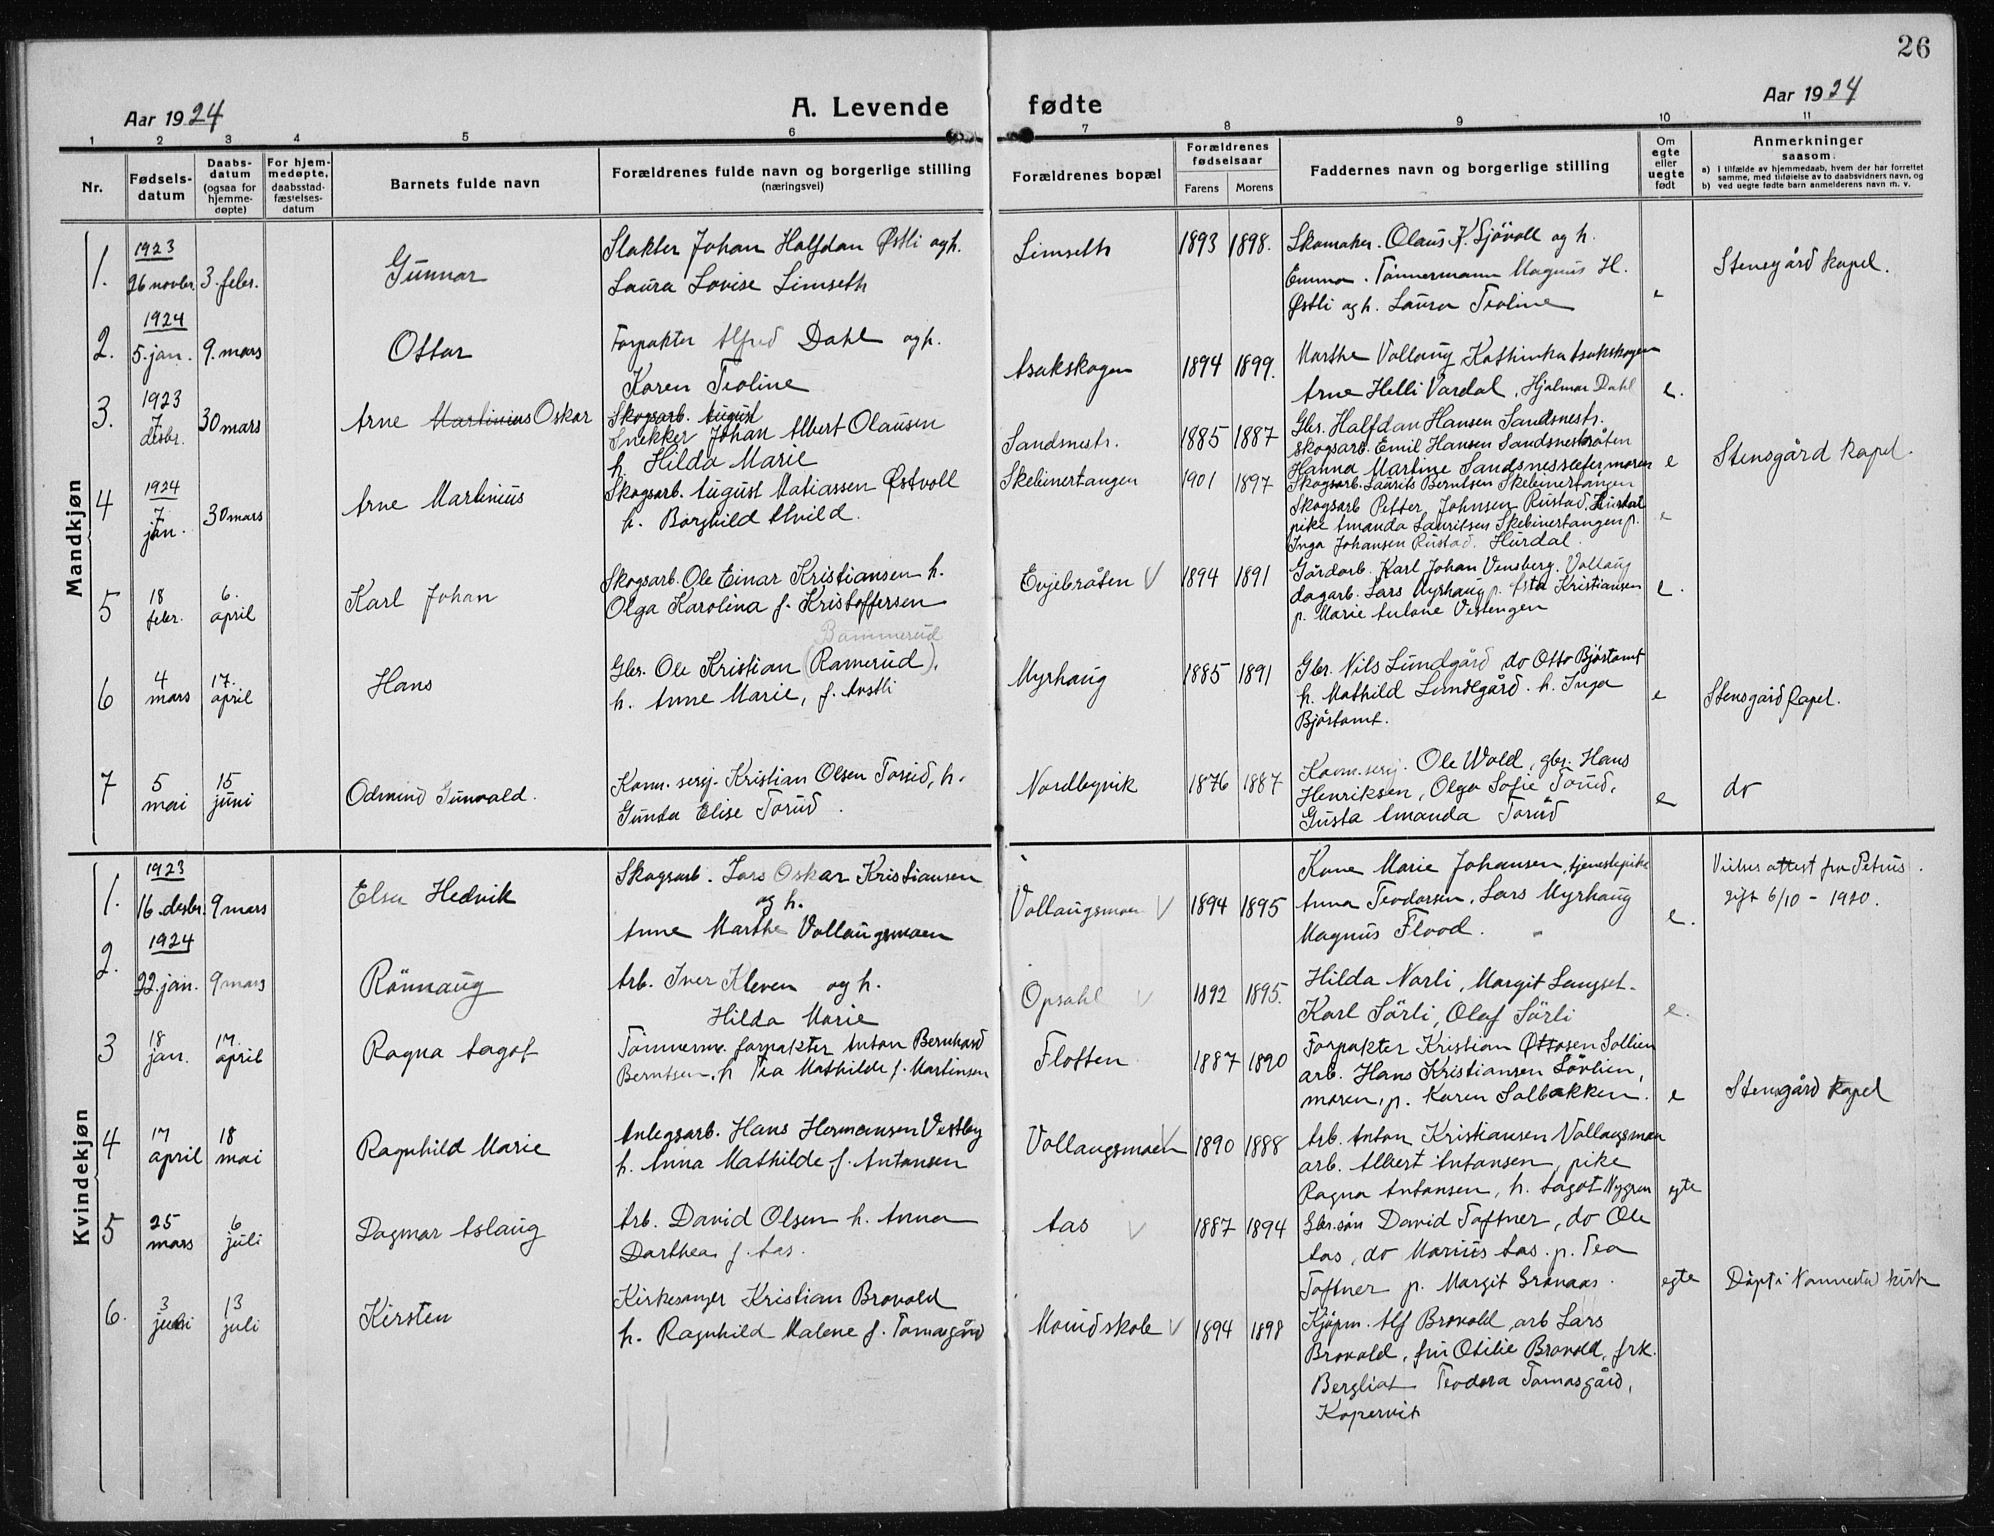 26
Aar 1924
A. Levende fødte
Aar 1924
1 2 3 4 5 6 7 8 9 10 11
Nr.
Fødsels-
datum
Daabs-
datum
(ogsaa for
hjemme-
døpte)
For hjem-
medøpte,
daabsstad-
fæstelses-
datum
Barnets fulde navn
Forældrenes fulde navn og borgerlige stilling
(næringsvei)
Forældrenes bopæl
Forældrenes
fødselsaar
Farens Morens
Faddernes navn og borgerlige stilling
Om
egte
eller
uegte
født
Anmerkninger
saasom:
a) I tilfælde av hjemmedaab, hvem der har forrettet
samme, med tilføielse av to daabsvidners navn, og
b) ved uegte fødte barn anmelderens navn m. v.
Mandkjøn
1.
1923
26 novbr. 3. febr.
Gunnar
Slakter Johan Halfdan Østli og h.
Laura Lovise Limseth
Limseth
1893 1898.
Skomaker. Olaus K. Sjövoll og h.
Emma. Tömmermann Magnus H.
Østli og h. Laura Teoline
e
Stensgård kapel.
2.
1924
5. jan. 9. mars
Ottar
Forpakter Alfred Dahl og h.
Karen Teoline
Asakskogen
1894 1899.
Marthe Vollaug Kathinka Asakskogen
Arne Helli Vardal, Hjalmar Dahl
e.
3.
1923
7.
desbr. 30 mars
Arne Martinius Oskar
Skogsarb. August
Snekker Johan Albert Olausen
h. Hilda Marie
Sandsnestr.
1885 1887
Gbr. Halfdan Hansen Sandsnestr.
Skogsarb. Emil Hansen Sandsnesbråten
Hanna Martine Sandsnessletermoren
e
Stensgård kapel.
4
1924
7.
jan. 30 mars
Arne Martinius
Skogsarb. August Matiassen Østvoll
h. Borghild Alvild.
Skebinertangen
1901 1897
Skogsarb. Laurits Berntsen Skebinertangen
Skogsarb Petter Johnsen Rustad,
pike Amanda Lauritsen Skebinertangen p.
Inga Johansen Rustad. Hurdal.
e
5
18
febr.
6.
april
Karl Johan
Skogsarb. Ole Einar Kristiansen h.
Olga Karolina f. Kristoffersen
Evjebråten V
1894 1891
Gårdarb. Karl Johan Vensberg. Vollaug
dagarb. Lars Myrhaug p. Asta Kristiansen
p. Marie Antone Vestengen
e.
6
4
mars
17.
april
Hans
Bammerud
Gbr. Ole Kristian (Ramerud).
h. Anne Marie, f. Austli
Myrhaug
1885 1891
Gbr. Nils Lundgård do Otto Björtomt
h. Mathild Lundgård. h. Inga
Björtomt.
e
Stensgård kapel.
7
5
mai
15
juni
Odmund Gunvald.
Kom. serj. Kristian Olsen Torud, h.
Gunda Elise Torud.
Nordbyvik
1876 1887
Kom. serj. Ole Wold, gbr. Hans
Henriksen, Olga Sofie Torud,
Gusta Amanda Torud
e
do
Kvindekjøn
1.
1923
16. desbr. 9 mars
Elsa Hedvik
Skogsarb. Lars Oskar Kristiansen
og h.
Anne Marthe Vollaugsmoen
Vollaugsmoen V
1894 1895
Kone Marie Johansen, tjenestepike
Anna Teodorsen, Lars Myrhaug
Magnus Flood.
e.
Vielses attest fra Petrus.
gift 6/10 - 1920.
2.
1924
22. jan. 9 mars
Rönnaug
Arb. Iver Kleven og h.
Hilda Marie
Opsahl V
1892 1895.
Hilda Narli, Margit Langset.
Karl Sörli, Olaf Sörli
e.
3
18
jan.
17.
april
Ragna Aagot
Tömmerm. forpakter Anton Bernhard
Berntsen, h Tea Mathilde f. Martinsen
Flotten
1887 1890
Forpakter Kristian Ottosen Sollien
arb. Hans Kristiansen Sövlien,
moren, p. Karen Solbakken.
e
Stensgård kapel
4
17
april
18
mai
Ragnhild Marie
Anlegsarb. Hans Hermansen Vestby
h. Anna Mathilde f. Antonsen
Vollaugsmoen V
1890 1888
Arb. Anton Kristiansen Vollaugsmoen
arb. Albert Antonsen, pike
Ragna Antonsen, h. Aagot Nygren
egte
5
25
mars
6
juli
Dagmar Aslaug
Arb. David Olsen h. Anna
Dorthea f. Aas.
Aas V
1887 1894
Gbr.søn David Toftner, do Ole
Aas, do Marius Aas. p. Tea
Toftner p. Margit Granaas.
egte
Döpt i Nannestad kirke
6.
3
juni
13
juli
Kirsten
Kirkesanger Kristian Brovold
h. Ragnhild Malene f. Tomasgård
Mo skole V
1894 1898
Kjøpm. Alf Brovold, arb Lars
Brovold, fru Otilie Brovold, frk.
Bergliot Teodora Tomasgård,
Kopervik